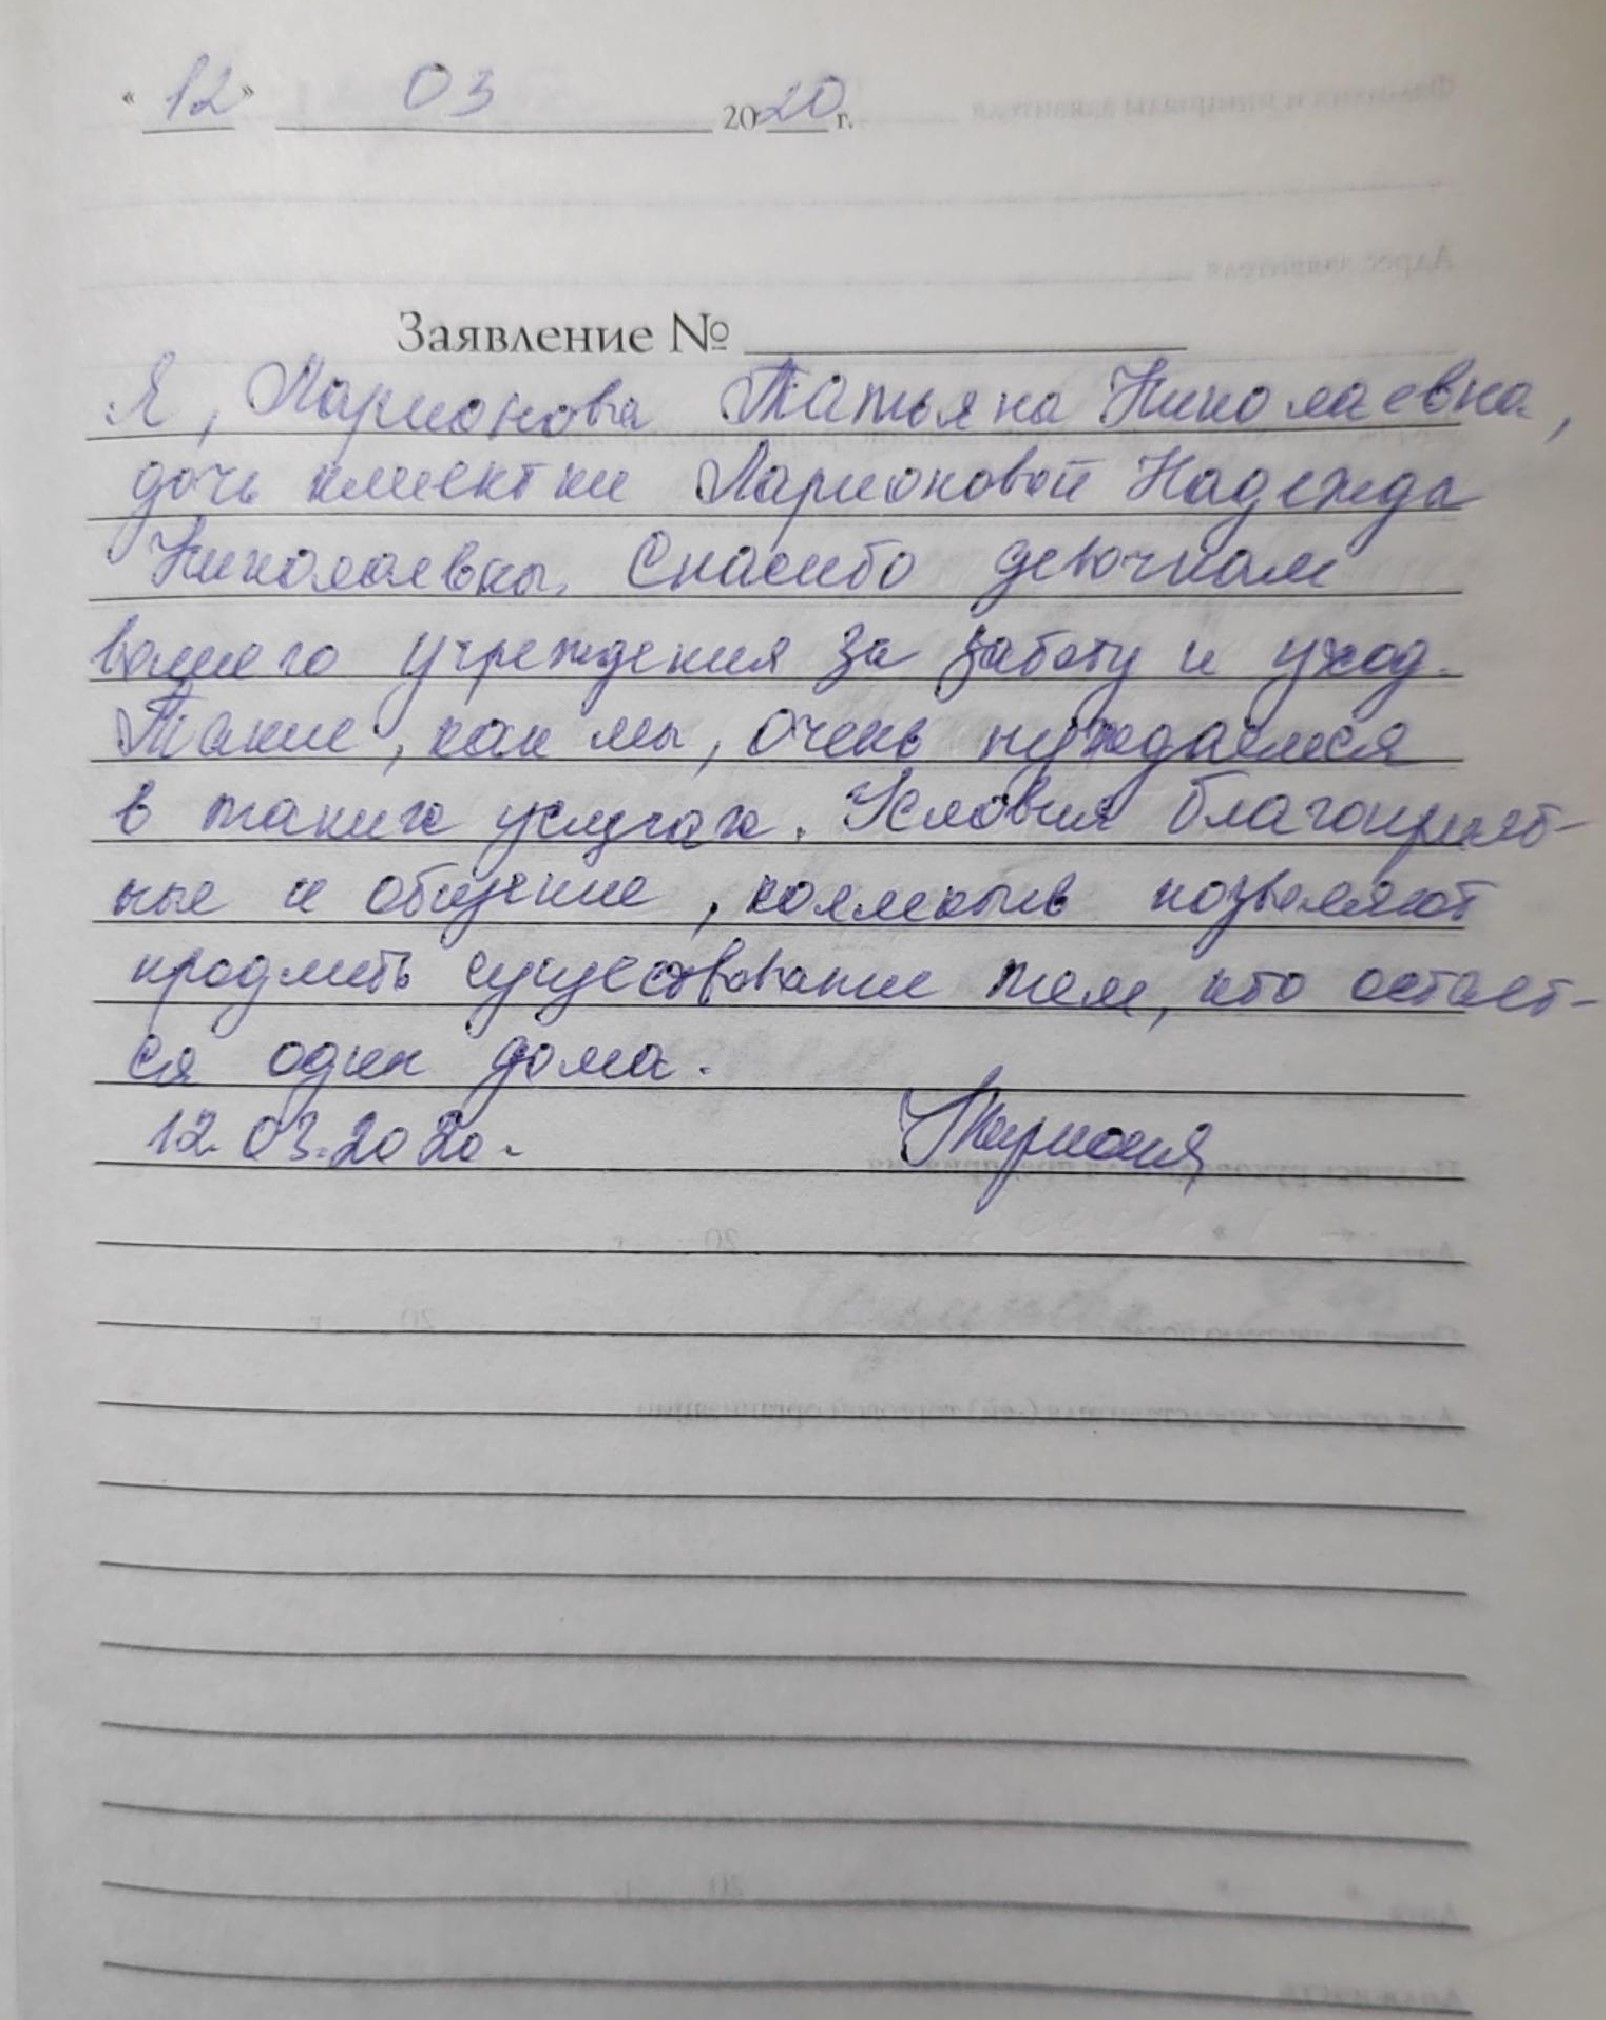 « 12 » 03 2020 г.
Заявление №
Я, Ларионова Татьяна Николаевна,
дочь клиентки Ларионовой Надежда
Николаевны. Спасибо девочкам
вашего учреждения за заботу и уход.
Такие, как мы, очень нуждаемся
в таких услугах. Условия благоприят-
ные и общение, коллектив позволяют
продлить существование тем, кто остает-
ся один дома.
12.03.2020.